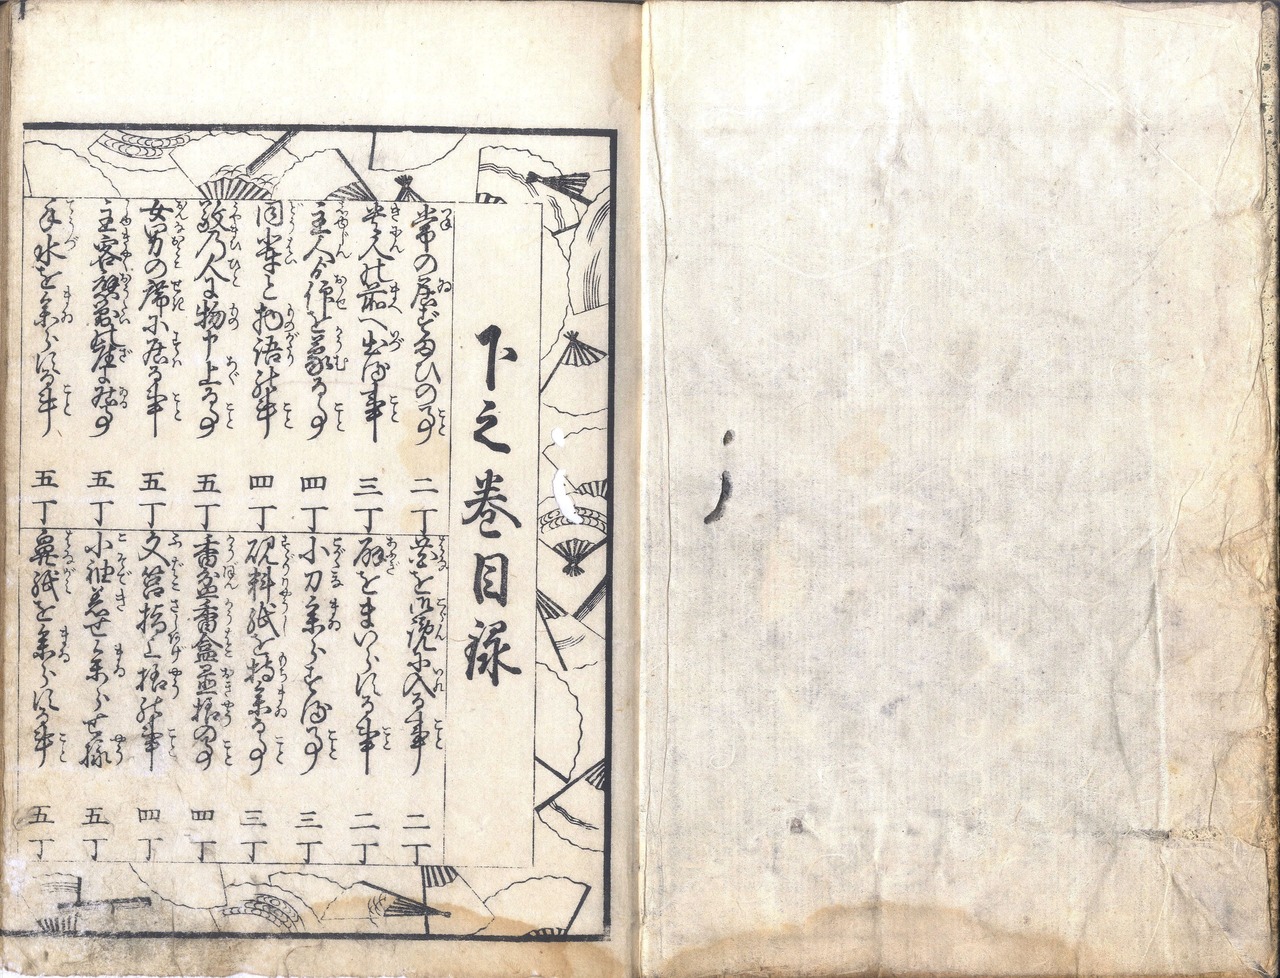 下之巻目録
常の居ずまひの事 二丁
貴人の前へ出る事 三丁
主人の仰を蒙る事 四丁
同輩と物語の事 四丁
敬ふ人に物申上る事 五丁
女男の席に居る事 五丁
主客
座に居る事 五丁
手水を参らする事 五丁
を御覧に入る事 二丁
をまいらする事 二丁
小刀参らする事 三丁
硯料紙を持参る事 三丁
香盆香盒置様の事 四丁
文筥指上様の事 四丁
小袖着せ参らせ様 五丁
鼻紙を参らする事 五丁